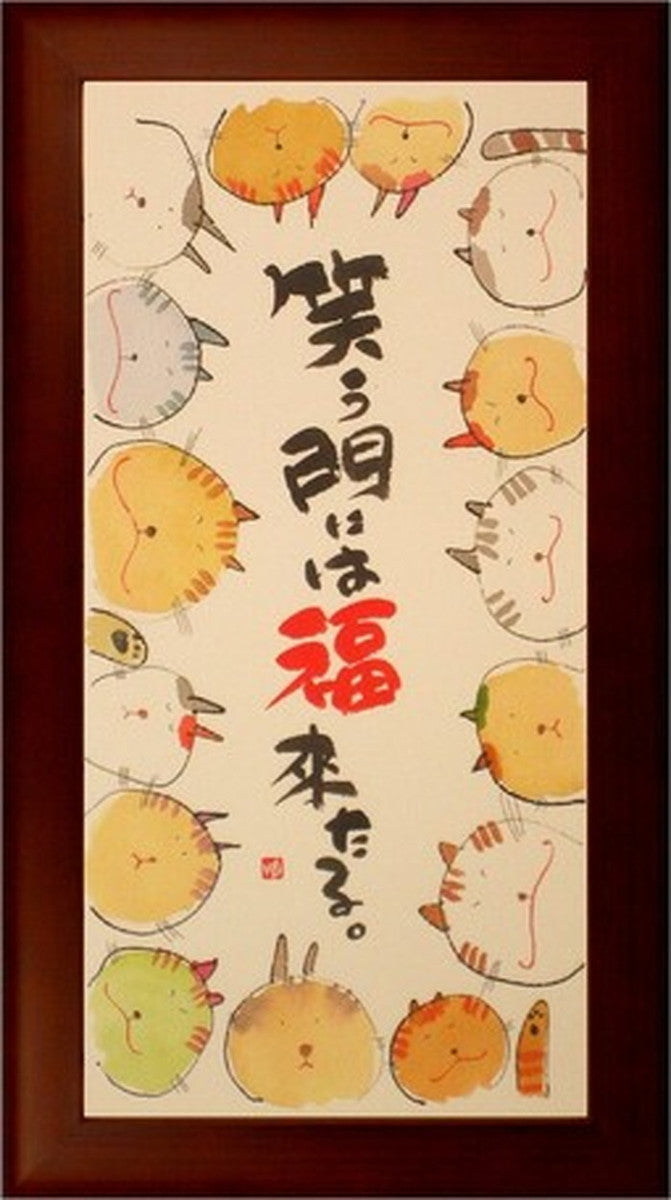 笑う門には福来たる。
ゆ